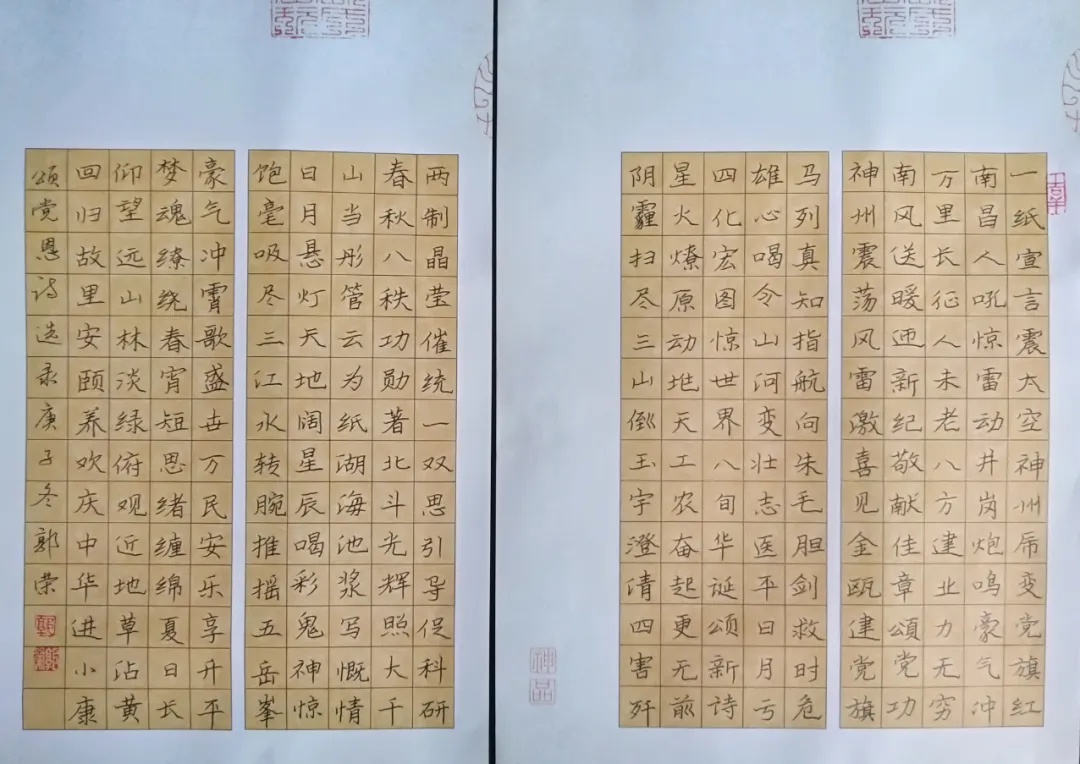 一纸宣言震太空神州变党旗红
南昌人吼惊雷动井岗炮鸣豪气冲
万里长征人未老八方建业力无穷
南风送暖迊新纪敬献佳章頌党功
神州震荡风雷激喜见金瓯建党旗
马列真知指航向朱毛胆剑救时危
雄心喝令山河变壮志医平日月亏
四化宏图惊世界八旬华诞頌新诗
星火燎原动地天工农奋起更无前
阴霾扫尽三山倒玉宇澄清四害歼
神品
两制晶莹催统一双思引导促科研
春秋八秩功勋著北斗光辉照大千
山当彤管云为纸湖海池浆写慨情
日月悬灯天地阔星辰喝彩鬼神惊
饱毫吸尽三江水转腕推摇五岳峯
豪气冲霄歌盛世万民安乐享升平
梦魂缭绕春宵短思绪缠绵夏日长
仰望远山林淡绿俯观近地草沾黄
回归故里安颐养欢庆中华进小康
頌党恩诗选录庚子冬郭荣